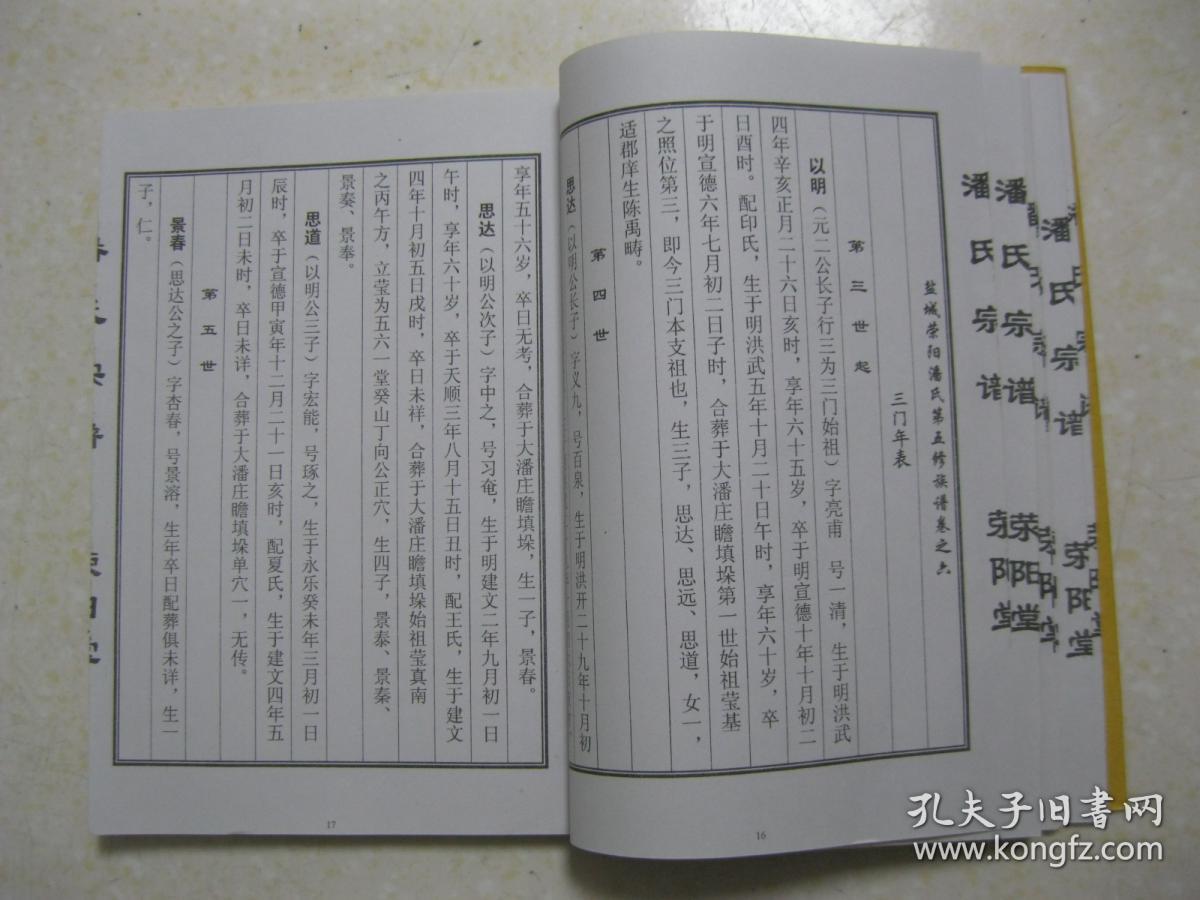 盐城荥阳潘氏第五修族谱卷之六
三门年表
第三世起
以明（元二公长子行三为三门始祖）字亮甫 号一清，生于明洪武
四年辛亥正月二十六日亥时，享年六十五岁，卒于明宣德十年十月初二
日酉时。配印氏，生于明洪武五年十月二十日午时，享年六十岁，卒
于明宣德六年七月初二日子时，合葬于大潘庄瞻填垛第一世始祖莹基
之照位第三，即今三门本支祖也，生三子，思达、思远、思道，女一，
适郡庠生陈禹畴。
第四世
思达（以明公长子）字义九，号百泉，生于明洪开二十九年十月初
16
享年五十六岁，卒日无考，合葬于大潘庄瞻填垛，生一子，景春。
思达（以明公次子）字中之，号习奄，生于明建文二年九月初一日
午时，享年六十岁，卒于天顺三年八月十五日丑时，配王氏，生于建文
四年十月初五日戌时，卒日未祥，合葬于大潘庄瞻填垛始祖莹真南
之丙午方，立莹为五六一堂癸山丁向公正穴，生四子，景泰、景秦、
景奏、景奉。
思道（以明公三子）字宏能，号琢之，生于永乐癸未年三月初一日
辰时，卒于宣德甲寅年十二月二十一日亥时，配夏氏，生于建文四年五
月初二日未时，卒日未详，合葬于大潘庄瞻填垛单穴一，无传。
第五世
景春（思达公之子）字杏春，号景溶，生年卒日配葬俱未详，生一
子，仁。
17
潘氏宗谱 荥阳堂
潘氏宗谱 荥阳堂
潘氏宗谱 荥阳堂
孔夫子旧书网
www.kongfz.com